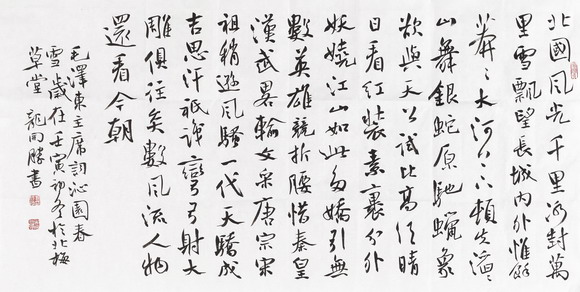 北國風光千里冰封萬
里雪飄望長城内外惟餘
莽〻大河上下頓失滔〻
山舞銀蛇原馳蠟象
欲與天公試比高須晴
日看紅裝素裹分外
妖嬈江山如此多嬌引無
數英雄競折腰惜秦皇
漢武畧輸文采唐宗宋
祖稍遜風騷一代天驕成
吉思汗祇識彎弓射大
雕俱往矣數風流人物
還看今朝
毛澤東主席詞沁園春
雪歲在壬寅初冬於北梅
草堂龍開勝書